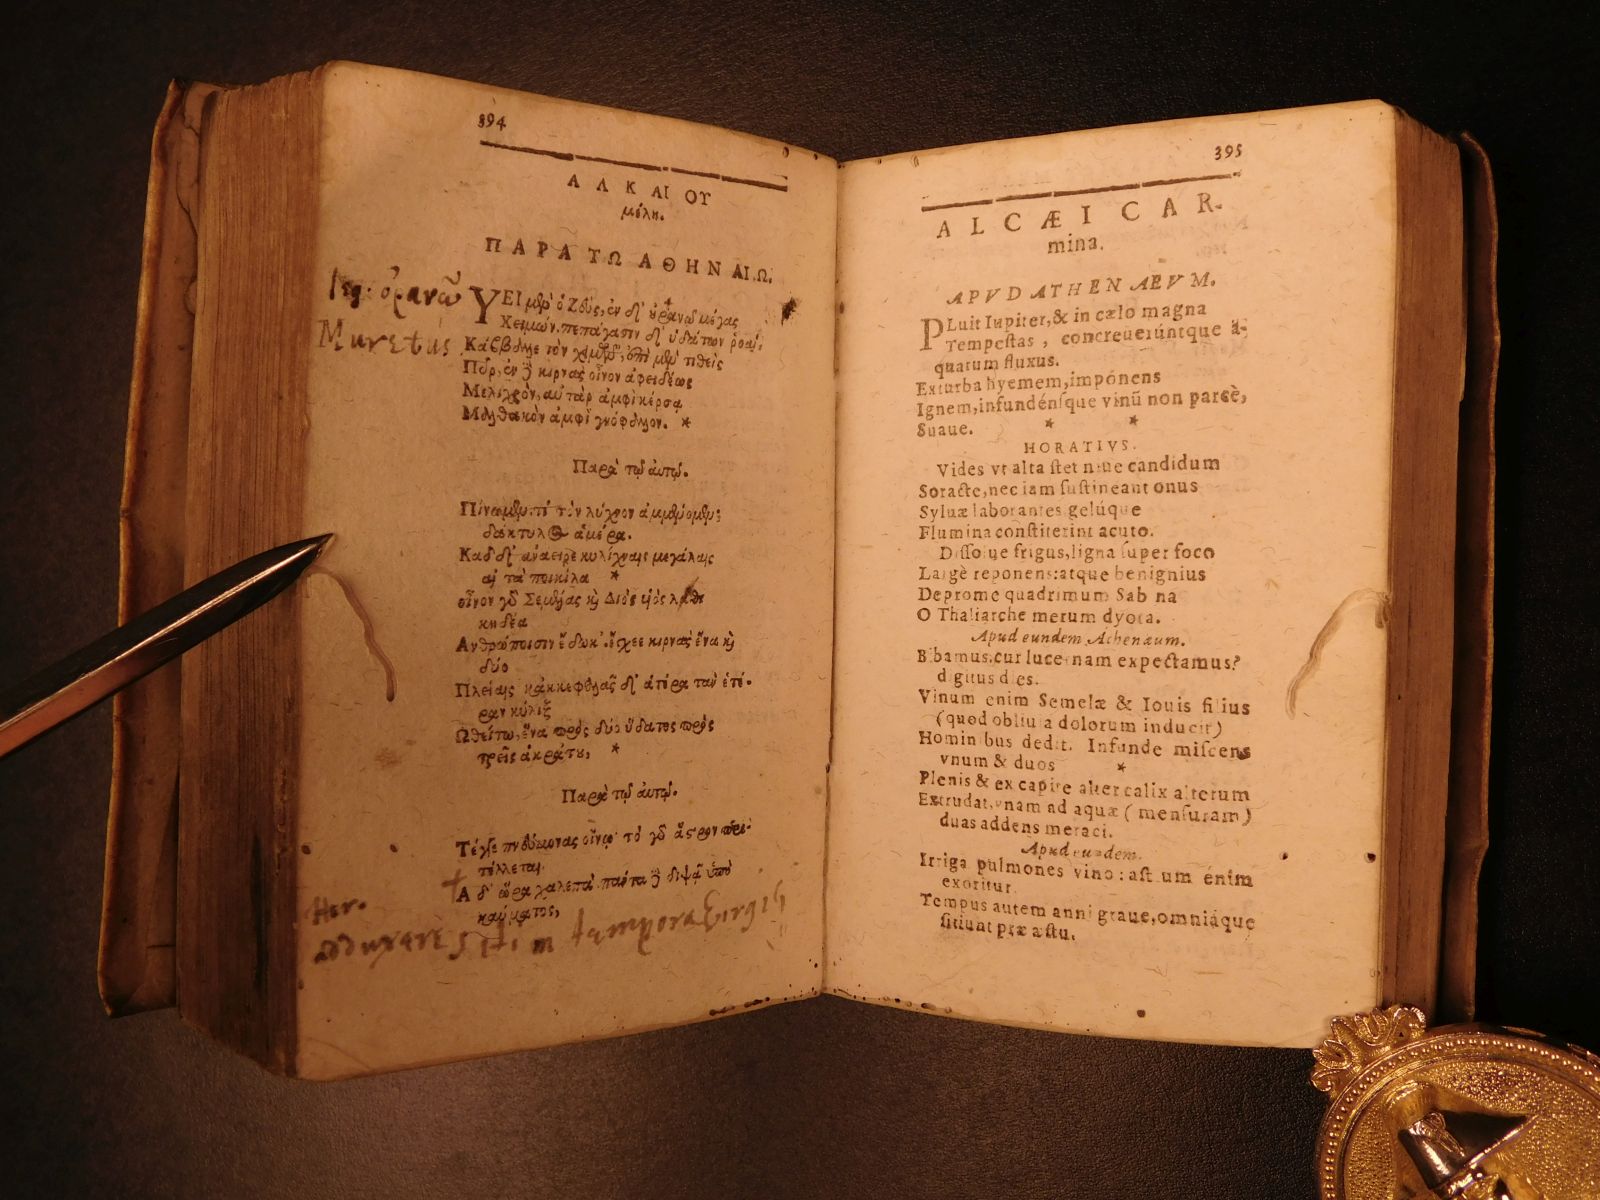 394
ΑΛΚΑΙΟΥ
μέλη.
ΠΑΡΑ ΤΩ ΑΘΗΝΑΙΩ.
ὀρανῶ
Muretus
ΥΕΙ μὲν ὁ Ζεὺς, ἐν δ' ὐρανῶ μέγας
Χειμών. πεπάγασιν δ' ὑδάτων ῥοαί,
Κάββαλλε τὸν χειμῶν', ἐπὶ μὲν τιθεὶς
Πῦρ, ἐν δὲ κιρνὰς οἶνον ἀφειδέως
Μελιχρὸν, αὐτὰρ ἀμφὶ κόρσᾳ
Μαλθακὸν ἀμφὶ γνόφαλλον. *
Παρὰ τῷ αὐτῷ.
Πίνωμεν. τί τὸν λύχνον ἀμμένομεν;
δάκτυλος ἁμέρα.
Καδδ' ἀνάειρε κυλίχναις μεγάλαις
αἰ τὰ ποικίλα *
οἶνον γὸ Σεμέλας καὶ Διὸς υἱὸς λαθι
κηδέα
Ανθρώποισιν ἔδωκ'. ἔγχεε κιρνὰς ἕνα καὶ
δύο
Πλείαις κἀκκεφαλᾶς δ' ἀτέρα τὰν ἑτέ-
ραν κύλιξ
Ωθείτω, ἕνα πρὸς δύο ὕδατος πρὸς
τρεῖς ἀκράτου, *
Παρὰ τῷ αὐτῷ.
Τέγγε πνεύμονας οἴνῳ· τὸ γὸ ἄστρον περι-
τέλλεται.
Α δ' ὥρα χαλεπὰ. πάντα δὲ διψᾷ ὑπὸ
καύματος,
Hor.
adduxere sitim tempora Virgili
395
ALCÆI CAR-
mina.
APVD ATHENAEVM.
PLuit Iupiter, & in cælo magna
Tempestas, concreuerúntque a-
quarum fluxus.
Exturba hyemem, impónens
Ignem, infundénsque vinū non parcè,
Suaue. * *
HORATIVS.
Vides vt alta stet niue candidum
Soracte, nec iam sustineant onus
Syluæ laborantes gelúque
Flumina constiterint acuto.
Dissolue frigus, ligna super foco
Largè reponens: atque benignius
Deprome quadrimum Sabina
O Thaliarche merum dyota.
Apud eundem Athenæum.
Bibamus. cur lucernam expectamus?
digitus dies.
Vinum enim Semelæ & Iouis filius
(quod obliuia dolorum inducit)
Hominibus dedit. Infunde miscens
vnum & duos *
Plenis & ex capite alter calix alterum
Extrudat, vnam ad aquæ (mensuram)
duas addens meraci.
Apud eundem.
Irriga pulmones vino: astrum énim
exoritur.
Tempus autem anni graue, omniáque
sitiunt præ æstu.